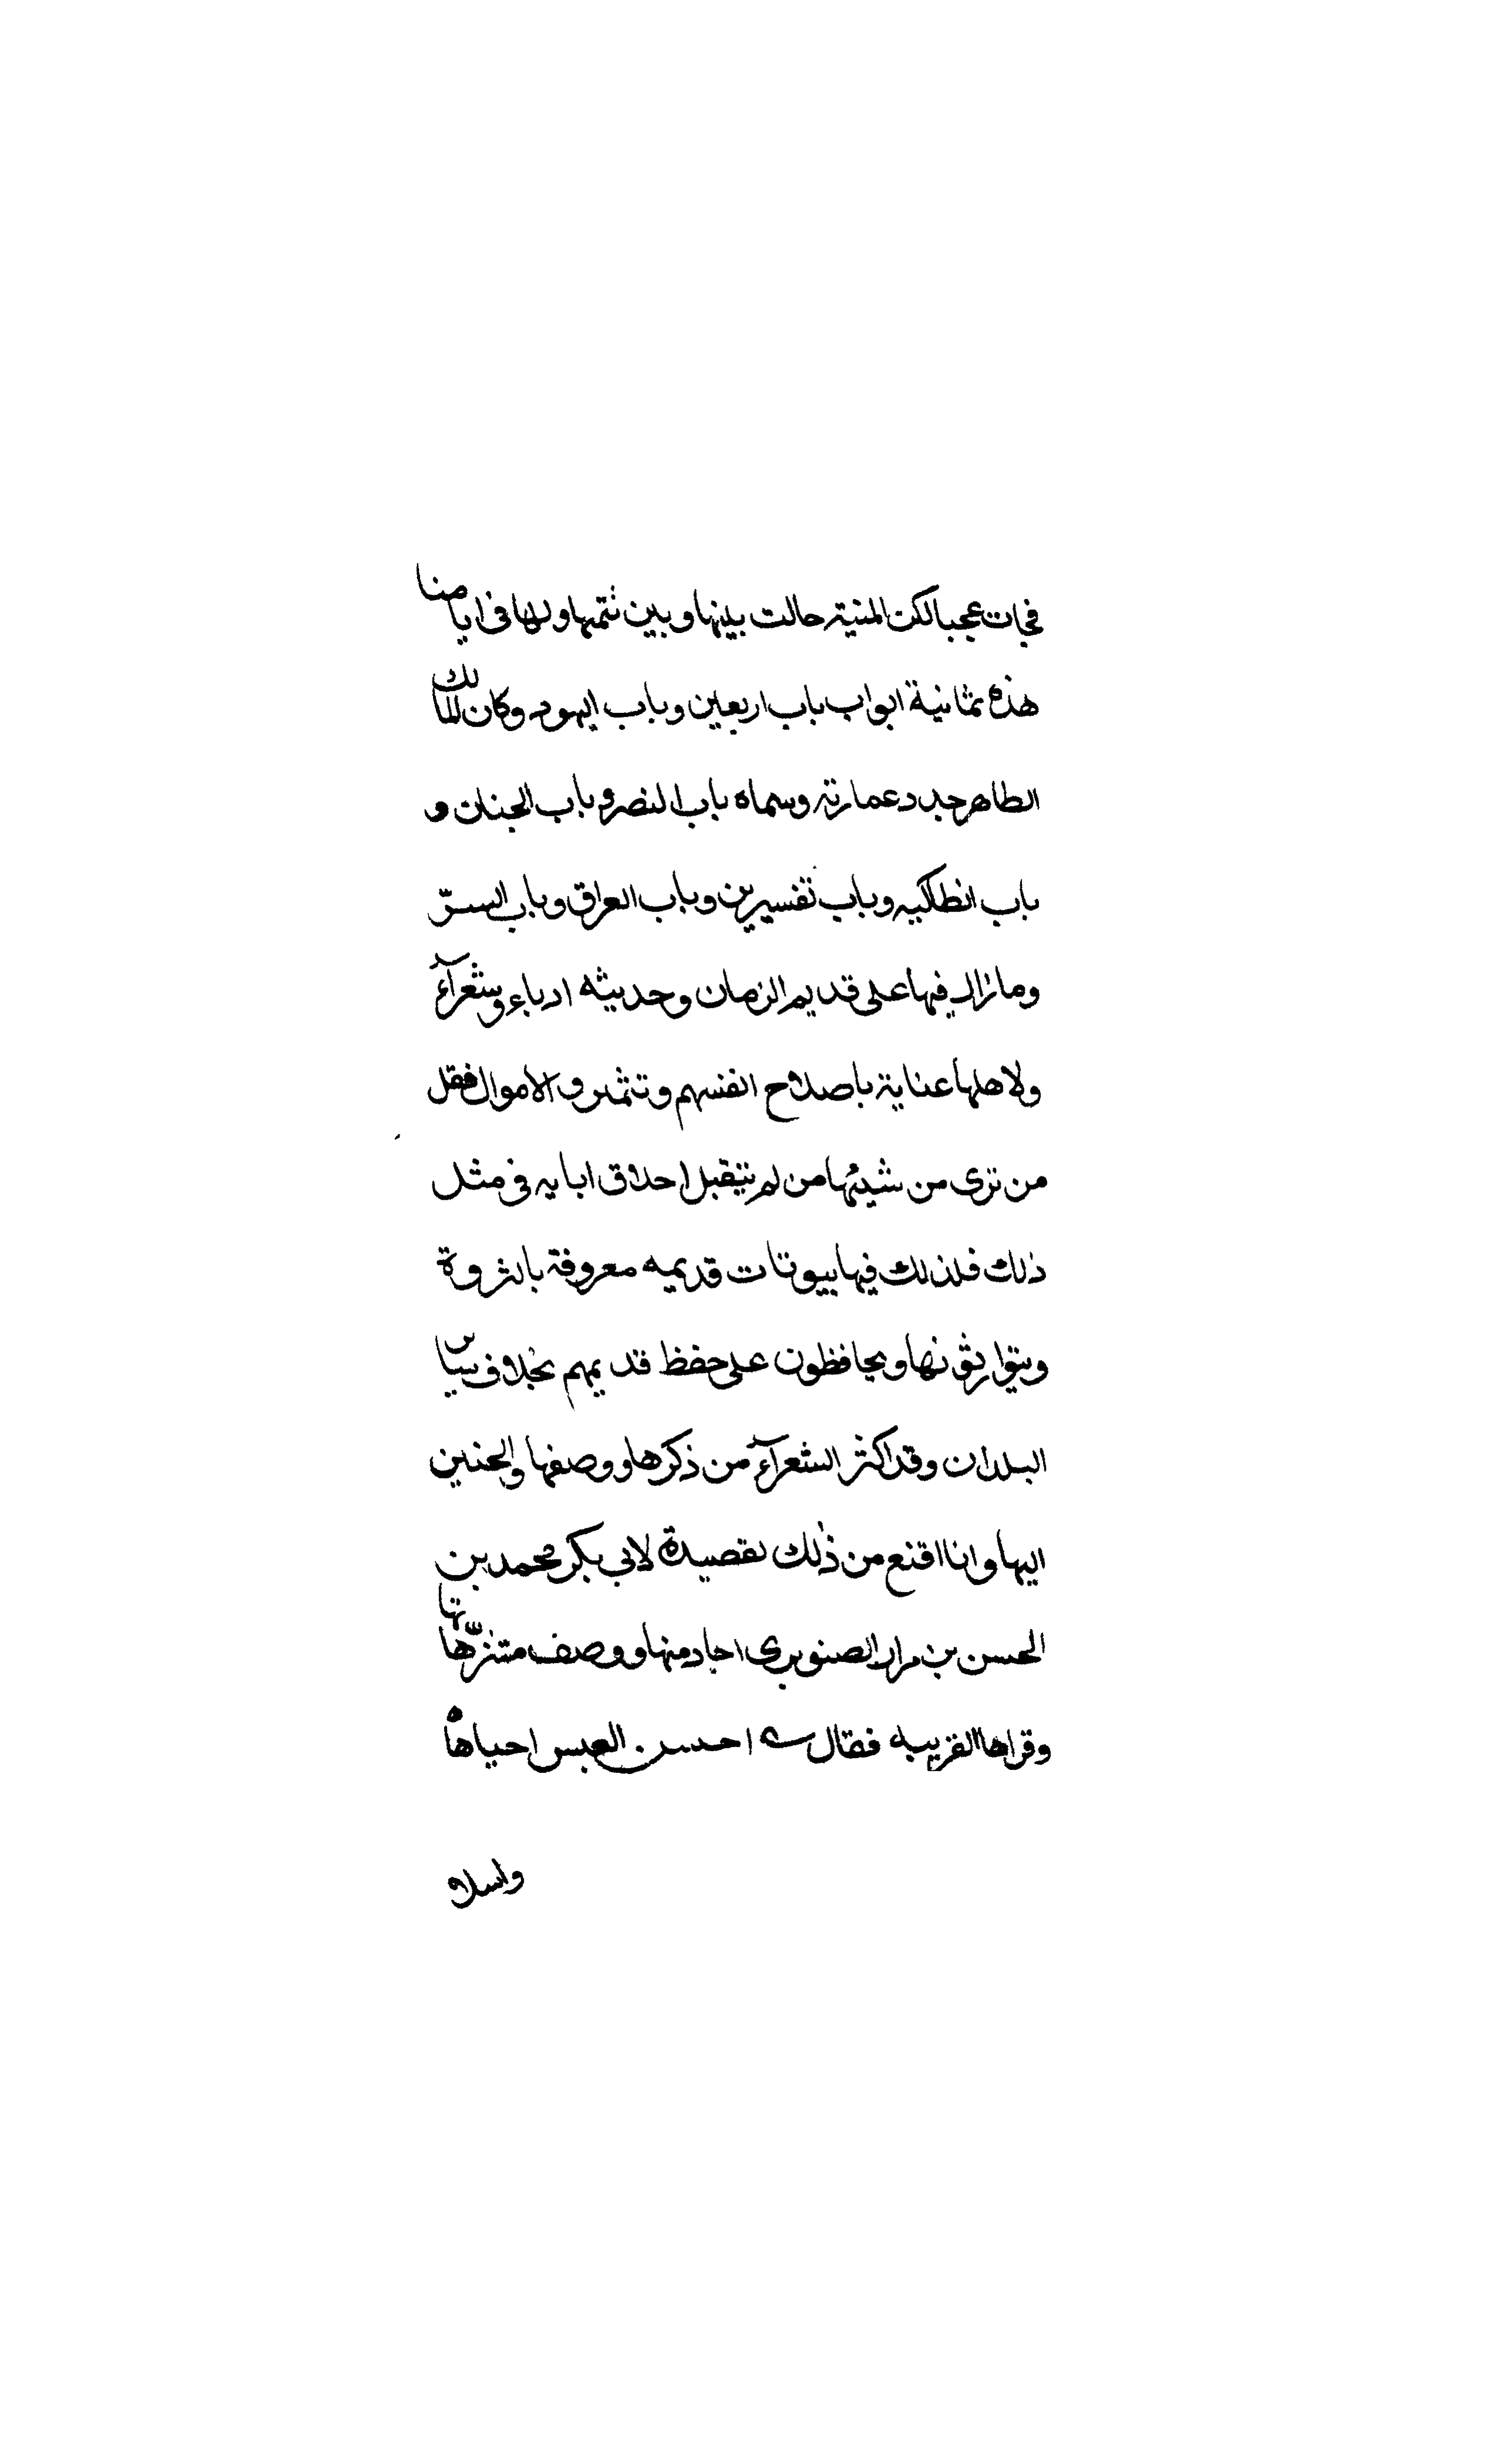 فجات عجبا لكن المنية حالت بينها وبين تتمتها ولها في ايامنا
هذه ثمانية ابواب باب اربعين وباب اليهود وكان الملك
الظاهر جدد عمارته وسماه باب النصر وباب الجنان و
باب انطاكيه وباب قنسرين وباب العراق وباب السرّ
وما زال فيها على قديم الزمان وحديثه ادباء وشعرآء
ولاهلها عناية باصلاح انفسهم وتثمير الاموال فقل
من ترى من نشيئها من لم يتقبل اخلاق ابايه في مثل
ذلك فلذلك فيها بيوتات قديمه معروفة بالثروة
ويتوارثونها ويحافظون على حفظ قديمهم بخلاف سائر
البلدان وقد اكثر الشعرآء من ذكرها ووصفها والحنين
اليها وانا اقنع من ذلك بقصيدة لابي بكر محمد بن
الحسن بن مرار الصنوبري اجاد فيها ووصف متنزّهاتها
وقراها القريبه فقال احبسن العيس احباها
واسلا